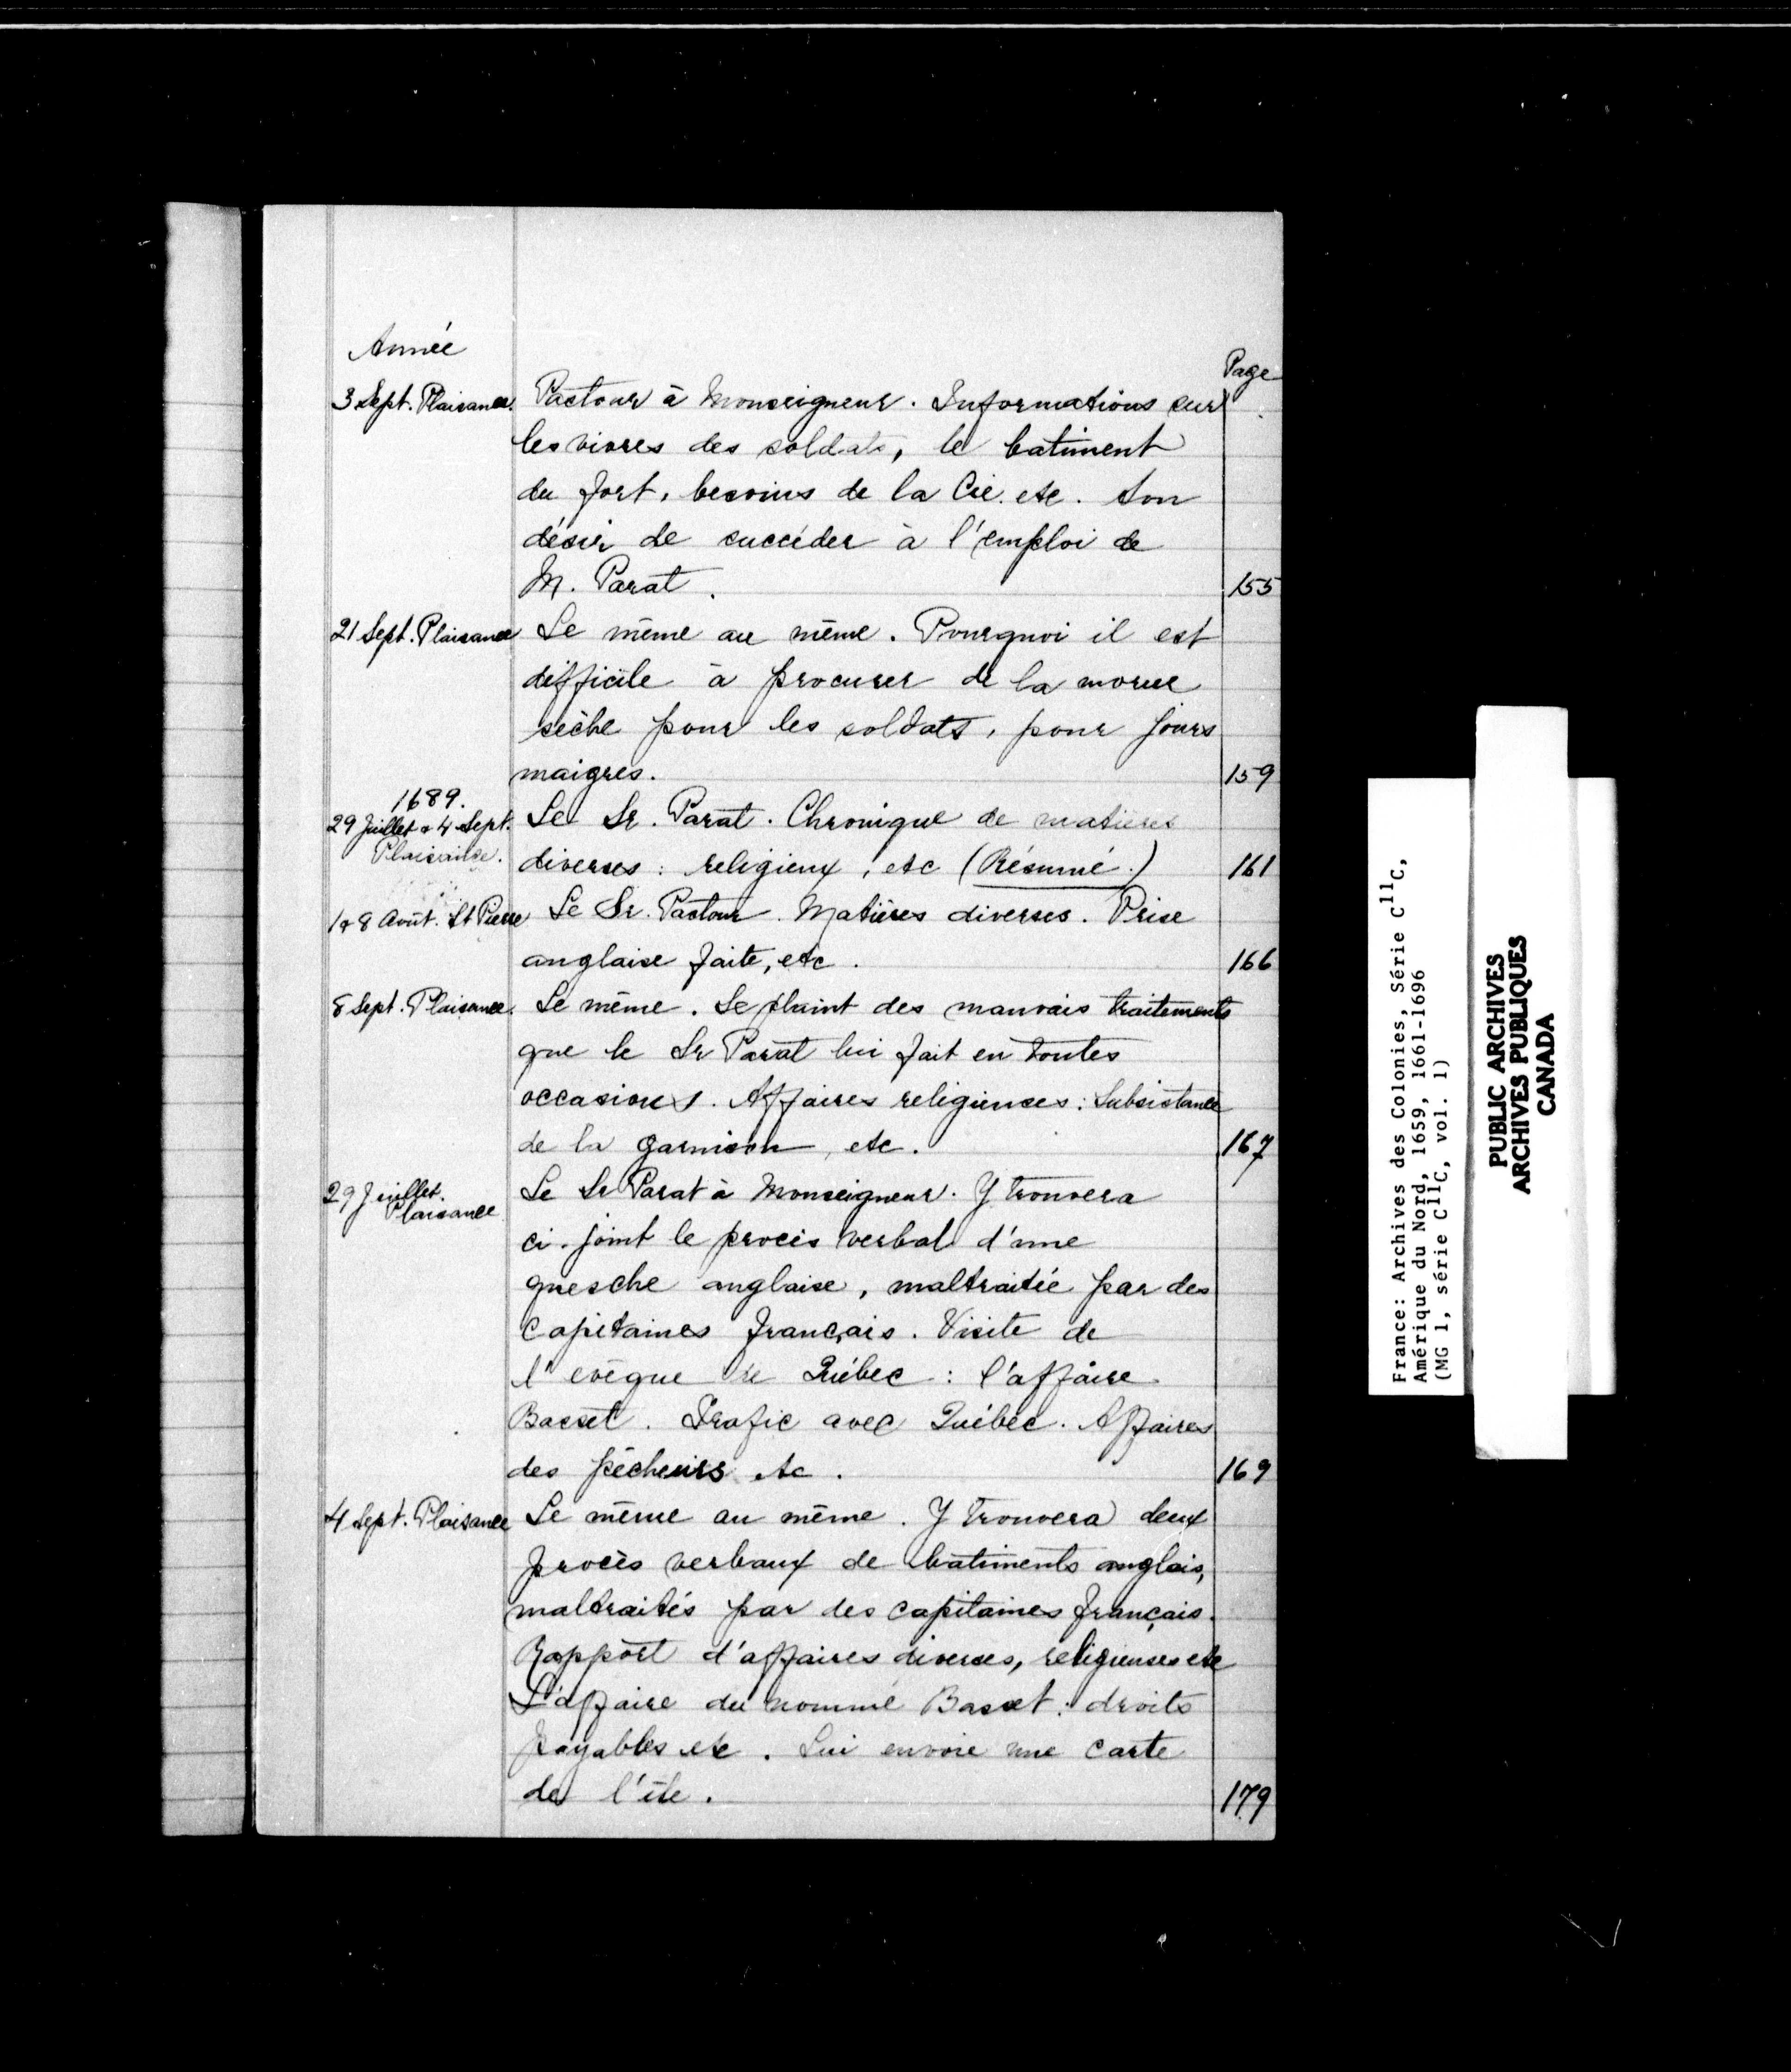 Année
Page
3 Sept. Plaisance. Pastour à Monseigneur. Informations sur
les vivres des soldats, le batiment
du fort, besoins de la Cie. etc. Son
désir de succéder à l'emploi de
M. Parat. 155
21 Sept. Plaisance Le même au même. Pourquoi il est
difficile à procurer de la morue
sèche pour les soldats, pour jours
maigres. 159
1689.
29 Juillet & 4 Sept. Le Sr. Parat. Chronique de matières
Plaisance. diverses : religieux, etc (Résumé.) 161
1 & 8 Août. St Pierre Le Sr. Pastour. Matières diverses. Prise
anglaise faite, etc. 166
8 Sept. Plaisance. Le même. Se plaint des mauvais traitements
que le Sr Parat lui fait en toutes
occasions. Affaires religieuses : Subsistance
de la garnison, etc. 167
29 Juillet. Le Sr Parat à Monseigneur. Y trouvera
Plaisance
ci-joint le procès verbal d'une
quesche anglaise, maltraitée par des
Capitaines français. Visite de
l'evêque de Québec : l'affaire
Basset. Trafic avec Québec. Affaires
des pêcheurs etc. 169
4 Sept. Plaisance Le même au même. Y trouvera deux
procès verbaux de bâtiments anglais,
maltraités par des capitaines français.
Rapport d'affaires diverses, religieuses etc
L'affaire du nommé Basset : droits
payables etc. Lui envoie une carte
de l'île. 179
France: Archives des Colonies, Série C11C,
Amérique du Nord, 1659, 1661-1696
(MG 1, série C11C, vol. 1)
PUBLIC ARCHIVES
ARCHIVES PUBLIQUES
CANADA